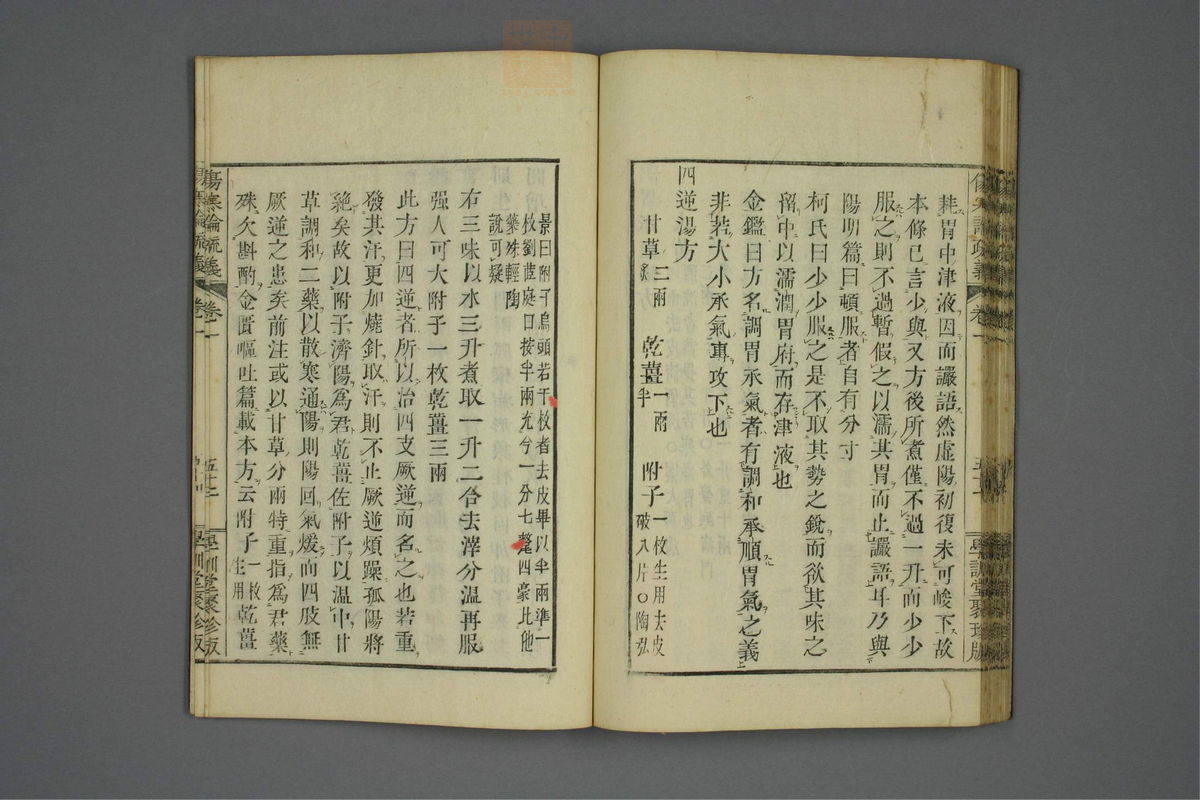 耗胃中津液因而讝語然虛陽初復未可峻下故
本條已言少與又方後所煮僅不過一升而少少
服之則不過暫假之以濡其胃而止讝語耳乃與
陽明篇曰頓服者自有分寸
柯氏曰少少服之是不取其勢之銳而欲其味之
留中以濡潤胃府而存津液也
金鑑曰方名調胃承氣者有調和承順胃氣之義
非若大小承氣專攻下也
四逆湯方
甘草二兩炙 乾薑一兩半 附子一枚生用去皮破八片○陶弘
景曰附子烏頭若干枚者去皮畢以半兩準一
枚劉茝庭曰按半兩允今一分七氂四豪比他
藥殊輕陶
說可疑
右三味以水三升煮取一升二合去滓分温再服
强人可大附子一枚乾薑三兩
此方曰四逆者所以治四支厥逆而名之也若重
發其汗更加燒針取汗則不止厥逆煩躁孤陽將
絕矣故以附子濟陽爲君乾薑佐附子以温中甘
草調和二藥以散寒通陽則陽回氣煖而四肢無
厥逆之患矣前注或以甘草分兩特重指爲君藥
殊欠斟酌金匱嘔吐篇載本方云附子一枚生用乾薑
傷寒論疏義 卷一 學訓堂聚珍版